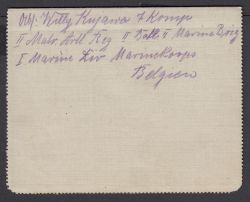 Abs. Willy Kujawa 7 Komp
II Matr. Artl Reg II Batl II Marine Brig
I Marine Div Marinekorps
Belgien